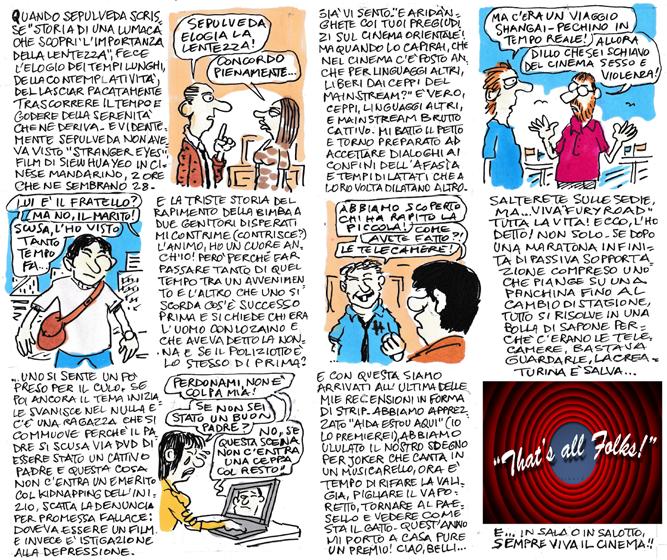 QUANDO SEPULVEDA SCRIS=
SE "STORIA DI UNA LUMACA
CHE SCOPRI' L'IMPORTANZA
DELLA LENTEZZA", FECE
L'ELOGIO DEI TEMPI LUNGHI,
DELLA CONTEMPLATIVITA',
DEL LASCIAR PACATAMENTE
TRASCORRERE IL TEMPO E
GODERE DELLA SERENITA'
CHE NE DERIVA. EVIDENTE=
MENTE SEPULVEDA NON AVE=
VA VISTO "STRANGER EYES",
FILM DI SIEW HUA YEO IN CI=
NESE MANDARINO, 2 ORE
CHE NE SEMBRANO 28.
SEPULVEDA
ELOGIA LA
LENTEZZA!
CONCORDO
PIENAMENTE...
GIA' VI SENTO. "E ARIDA'N=
GHETE COI TUOI PREGIUDI=
ZI SUL CINEMA ORIENTALE!
MA QUANDO LO CAPIRAI, CHE
NEL CINEMA C'E' POSTO AN=
CHE PER LINGUAGGI ALTRI,
LIBERI DAI CEPPI DEL
MAINSTREAM?" E' VERO,
CEPPI, LINGUAGGI ALTRI,
E MAINSTREAM BRUTTO
CATTIVO. MI BATTO IL PETTO
E TORNO PREPARATO AD
ACCETTARE DIALOGHI AI
CONFINI DELL'AFASIA
E TEMPI DILATATI CHE A
LORO VOLTA DILATANO ALTRO.
MA C'ERA UN VIAGGIO
SHANGAI-PECHINO IN
TEMPO REALE!
ALLORA
DILLO CHE SEI SCHIAVO
DEL CINEMA SESSO E
VIOLENZA!
LUI E' IL FRATELLO?
MA NO, IL MARITO!
SOUSA, L'HO VISTO
TANTO
TEMPO
FA...
E LA TRISTE STORIA DEL
RAPIMENTO DELLA BIMBA A
DUE GENITORI DISPERATI
MI CONTRIME (CONTRISCE?)
L'ANIMO, HO UN CUORE AN=
CH'IO! PERO' PERCHE' FAR
PASSARE TANTO DI QUEL
TEMPO TRA UN AVVENIMEN=
TO E L'ALTRO CHE UNO SI
SCORDA COS'E' SUCCESSO
PRIMA E SI CHIEDE CHI ERA
L'UOMO CON LO ZAINO E
CHE AVEVA DETTO LA NON=
NA E SE IL POLIZIOTTO E'
LO STESSO DI PRIMA?
ABBIAMO SCOPERTO
CHI HA RAPITO LA
PICCOLA!
COME
AVETE FATTO?!
LE TELECAMERE!
SALTERETE SULLE SEDIE,
MA... VIVA "FURY ROAD"
TUTTA LA VITA! ECCO, L'HO
DETTO! NON SOLO. SE DOPO
UNA MARATONA INFINI=
TA DI PASSIVA SOPPORTA=
ZIONE COMPRESO UNO
CHE PIANGE SU UNA
PANCHINA FINO AL
CAMBIO DI STAGIONE,
TUTTO SI RISOLVE IN UNA
BOLLA DI SAPONE PER=
CHE' C'ERANO LE TELE=
CAMERE, BASTAVA
GUARDARLE, LA CREA=
TURINA E' SALVA...
...UNO SI SENTE UN PO'
PRESO PER IL CULO. SE
POI ANCORA IL TEMA INIZIA=
LE SVANISCE NEL NULLA E
C'E' UNA RAGAZZA CHE SI
COMMUOVE PERCHE' IL PA=
DRE SI SCUSA VIA DVD DI
ESSERE STATO UN CATTIVO
PADRE E QUESTA COSA
NON C'ENTRA UN EMERITO
COL KIDNAPPING DELL'INI=
ZIO, SCATTA LA DENUNCIA
PER PROMESSA FALLACE:
DOVEVA ESSERE UN FILM
E INVECE E' ISTIGAZIONE
ALLA DEPRESSIONE.
PERDONAMI, NON E'
COLPA MIA!
SE NON SEI
STATO UN BUON
PADRE?
NO, SE
QUESTA SCENA
NON C'ENTRA
UNA CEPPA
COL RESTO!
E CON QUESTA SIAMO
ARRIVATI ALL'ULTIMA DELLE
MIE RECENSIONI IN FORMA
DI STRIP. ABBIAMO APPREZ=
ZATO "AIDA ESTOU AQUI" (IO
LO PREMIEREI), ABBIAMO
ULULATO IL NOSTRO SDEGNO
PER JOKER CHE CANTA IN
UN MUSICARELLO, ORA E'
TEMPO DI RIFARE LA VALI=
GIA, PIGLIARE IL VAPO=
RETTO, TORNARE AL PAE=
SELLO E VEDERE COME
STA IL GATTO. QUEST'ANNO
MI PORTO A CASA PURE
UN PREMIO! CIAO, BELLI...
"That's all Folks!"
E... IN SALA O IN SALOTTO,
SEMPRE VIVA IL CINEMA!!